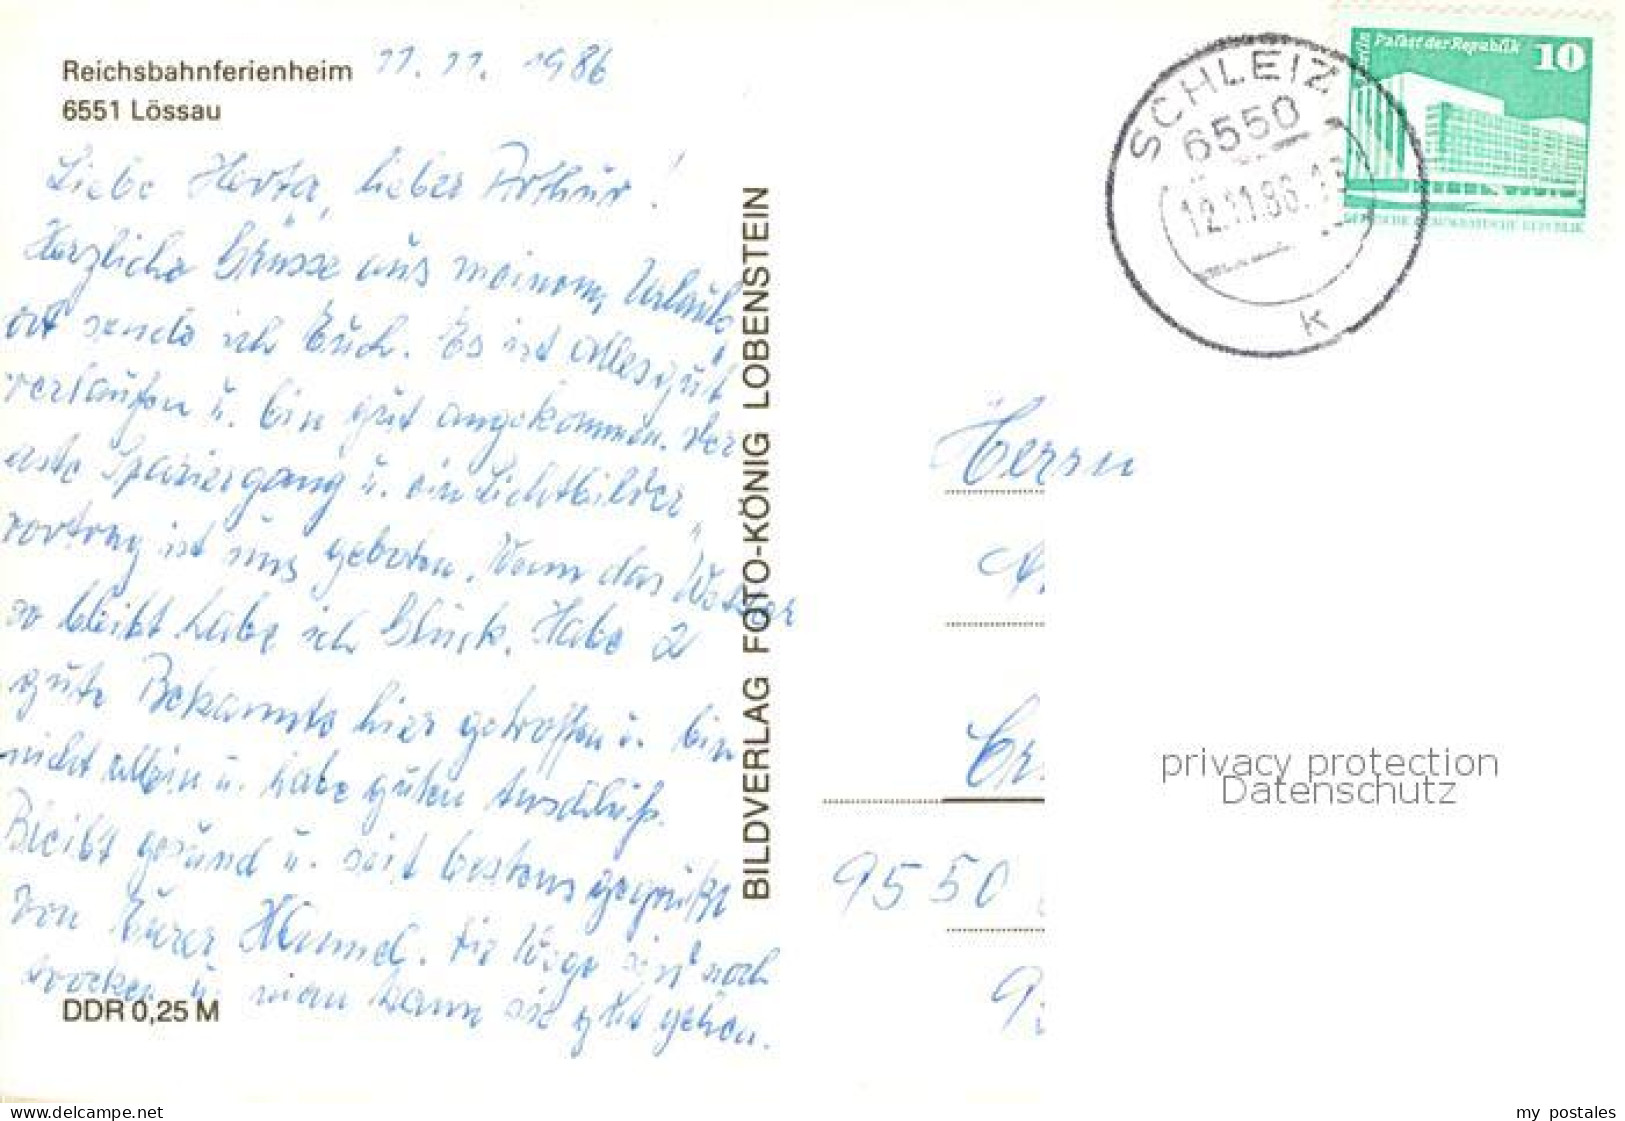 Reichsbahnferienheim
6551 Lössau
11. 11. 1986
Liebe Herta, lieber Arthur!
Herzliche Grüsse aus meinem Urlaubs
ort sende ich Euch. Es ist alles gut
verlaufen u. bin gut angekommen. Der
erste Spaziergang u. ein Lichtbilder
vortrag ist uns geboten. Wenn das Wetter
so bleibt habe ich Glück. Habe 2
gute Bekannte hier getroffen u. bin
nicht allein u. habe guten Anschluß.
Bleibt gesund u. seit bestens gegrüßt
von Eurer Hannel. Die Wege sind noch
trocken u. man kann sie gut gehen.
DDR 0,25 M
BILDVERLAG FOTO-KÖNIG LOBENSTEIN
SCHLEIZ
6550
12.11.86
K
Berlin Palast der Republik 10
DEUTSCHE DEMOKRATISCHE REPUBLIK
Herrn
9550
privacy protection
Datenschutz
www.delcampe.net
my_postales